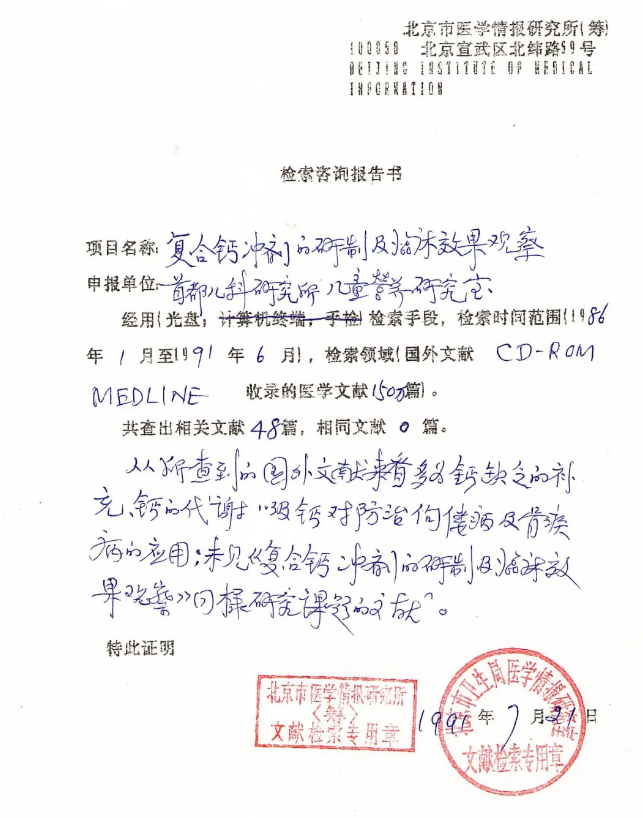 北京市医学情报研究所(筹)
100050 北京宣武区北纬路59号
BEIJING INSTITUTE OF MEDICAL
INFORMATION
检索咨询报告书
项目名称:复合钙冲剂的研制及临床效果观察
申报单位:首都儿科研究所儿童营养研究室
经用(光盘;计算机终端;手检)检索手段,检索时间范围(1986
年1月至1991年6月),检索领域(国外文献 CD-ROM
MEDLINE 收录的医学文献150万篇)。
共查出相关文献48篇,相同文献0篇。
从所查到的国外文献来看多为钙缺乏的补
充、钙的代谢以及钙对防治佝偻病及骨
病的应用;未见《复合钙冲剂的研制及临床效
果观察》同样研究课题的文献。
特此证明
北京市医学情报研究所
〈筹〉
文献检索专用章
1991年7月21日
市卫生局医学情报
文献检索专用章